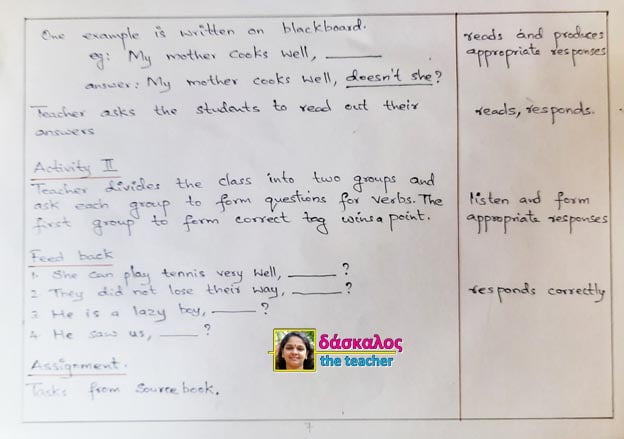 One example is written on blackboard.
eg: My mother cooks well, ______
answer: My mother cooks well, doesn't she?
Teacher asks the students to read out their
answers
Activity II
Teacher divides the class into two groups and
ask each group to form questions for verbs. The
first group to form correct tag wins a point.
Feed back
1. She can play tennis very well, ______ ?
2 They did not lose their way, ______ ?
3 He is a lazy boy, ______ ?
4. He saw us, _____ ?
Assignment.
Tasks from Sourcebook.
reads and produces
appropriate responses
reads, responds.
listen and form
appropriate responses
responds correctly
δάσκαλος
the teacher
7